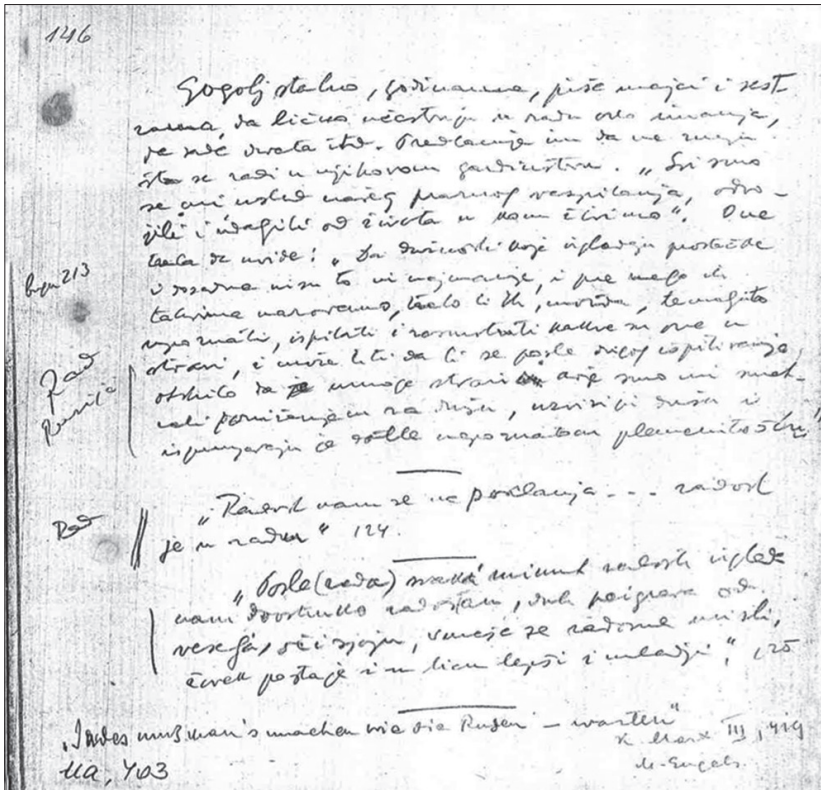 146
Gogolj stalno, godinama, piše majci i sest-
rama, da lično učestvuju u radu oko imanja,
da sade drveta itd. Predbacuje im da ne znaju
šta se radi u njihovom gazdinstvu. „Svi smo
se mi usled našeg praznog vaspitanja, odro-
dili i udaljili od života u kom živimo". One
treba da uvide: „Da dužnosti koje izgledaju
i dosadne nisu to ni najmanje, i pre nego ih
takvima nazovemo, trebalo bi ih, možda, temeljito
upoznati, ispitati i razmotriti kakve su one u
stvari, i može biti da bi se posle dugog ispitivanja
otkrilo da mnoge stvari koje smo mi smat-
rali ponižavajućim za dušu, uzvisuju dušu i
ispunjavaju je dotle nepoznatom plemenitošću"
knjiga 213
Rad
„Radost nam se ne poklanja ... radost
je u radu" 124.
Rad
„Posle (rada) svaki minut radosti izgleda
nam dvostruko radostan, duh poigrava od
veselja, oči sijaju, umeće se radosne misli,
čovek postaje i u licu lepši i mlađi," 125
„Indes muß man's machen wie die Russen – warten"
K. Marx III, 419
M-Engels.
Ua, 703